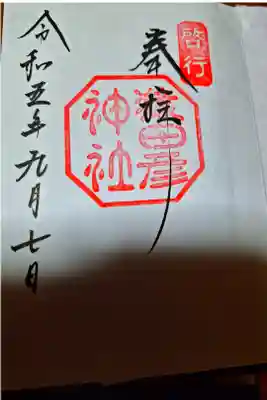 啓行
奉拝
猿田彦
神社
令和五年九月七日